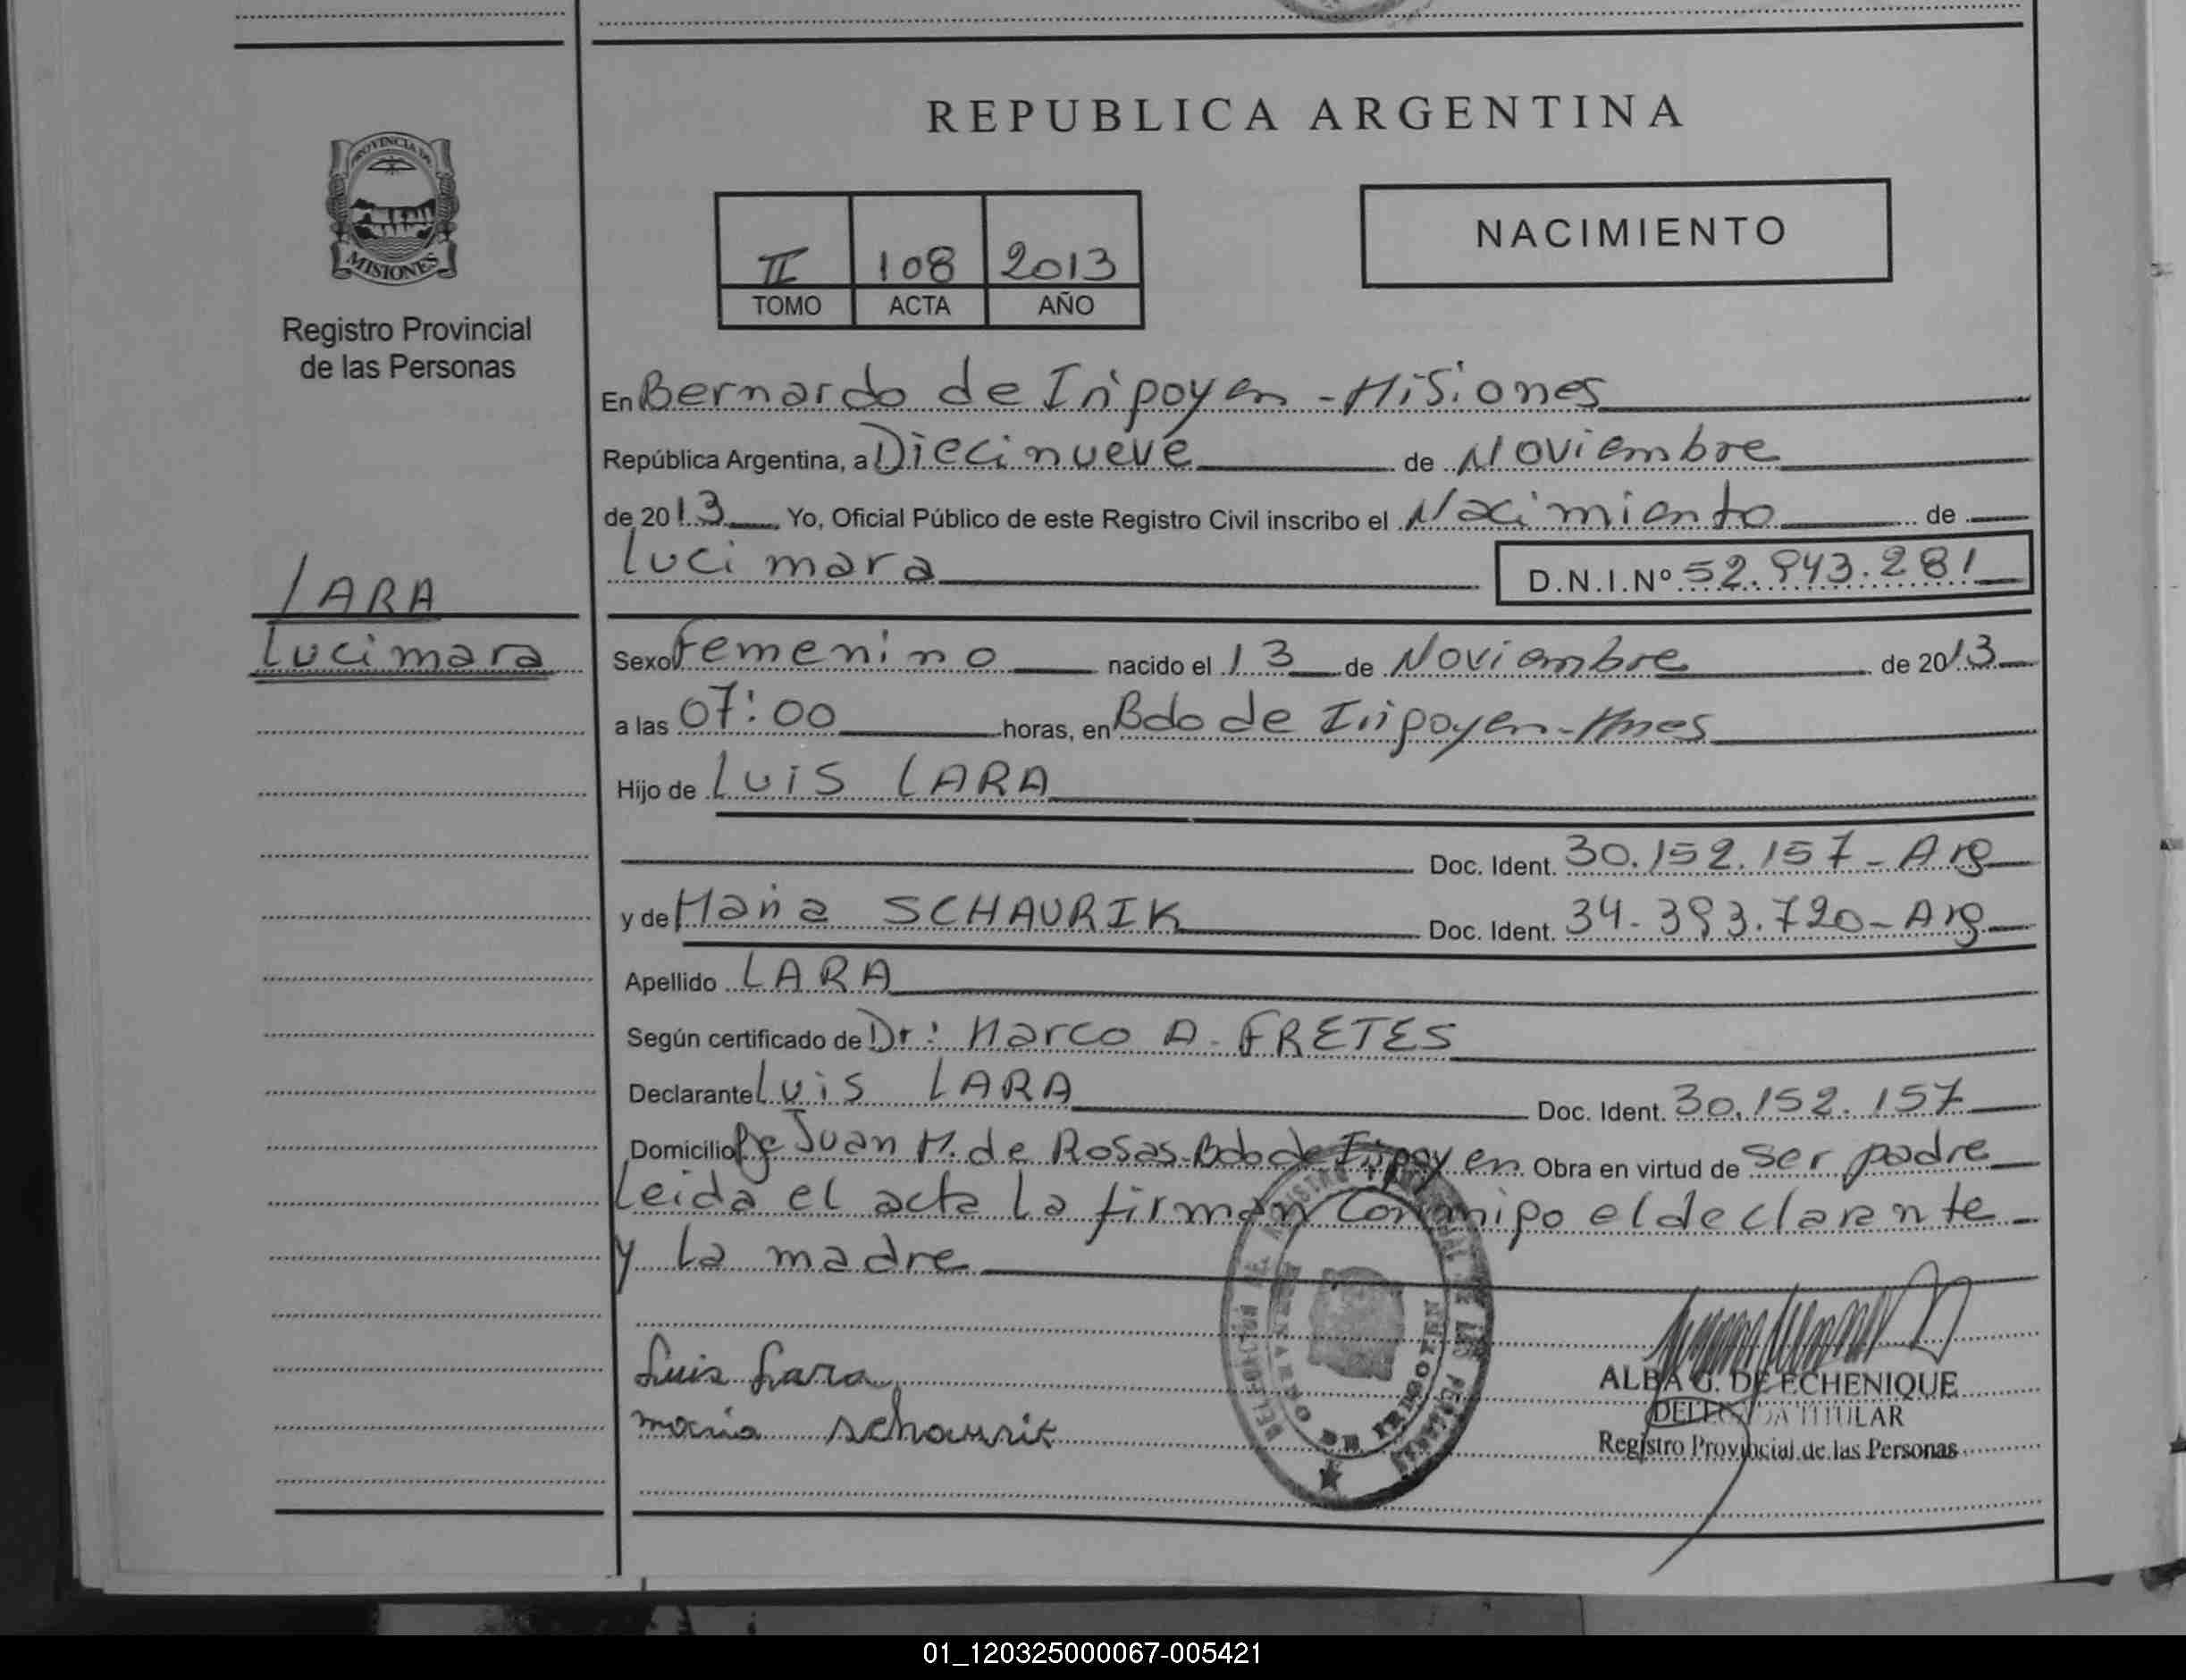 REPUBLICA ARGENTINA
PROVINCIA DE
MISIONES
Registro Provincial
de las Personas
II 108 2013
TOMO ACTA AÑO
NACIMIENTO
En Bernardo de Irigoyen - Misiones
República Argentina, a Diecinueve de Noviembre
de 2013 Yo, Oficial Público de este Registro Civil inscribo el Nacimiento de
Lucimara D.N.I.Nº 52.943.281
LARA
Lucimara
Sexo Femenino nacido el 13 de Noviembre de 2013
a las 07:00 horas, en Bdo de Irigoyen - Mnes
Hijo de Luis LARA
Doc. Ident. 30.152.157 - Arg
y de María SCHAURIK Doc. Ident. 34.393.720 - Arg
Apellido LARA
Según certificado de Dr: Marco A. FRETES
Declarante Luis LARA Doc. Ident. 30.152.157
Domicilio Juan M. de Rosas - Bdo de Irigoyen Obra en virtud de ser padre
Leida el acta la firman conmigo el declarante
y la madre
Luis Lara
maria schaurik
ALBA G. DE ECHENIQUE
DELEGADA TITULAR
Registro Provincial de las Personas
01_120325000067-005421